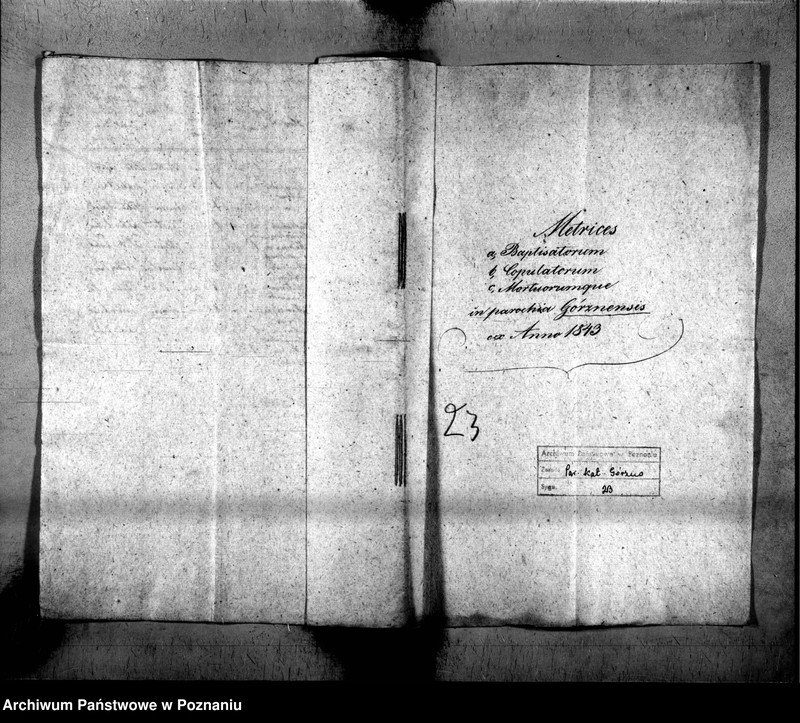 Metrices
a, Baptisatorum
b, Copulatorum
c, Mortuorumque
in parochia Górznensis
ex Anno 1843
23
Archiwum Państwowe w Poznaniu
Zespół Par. kat. Górzno
Sygn. 23
Archiwum Państwowe w Poznaniu